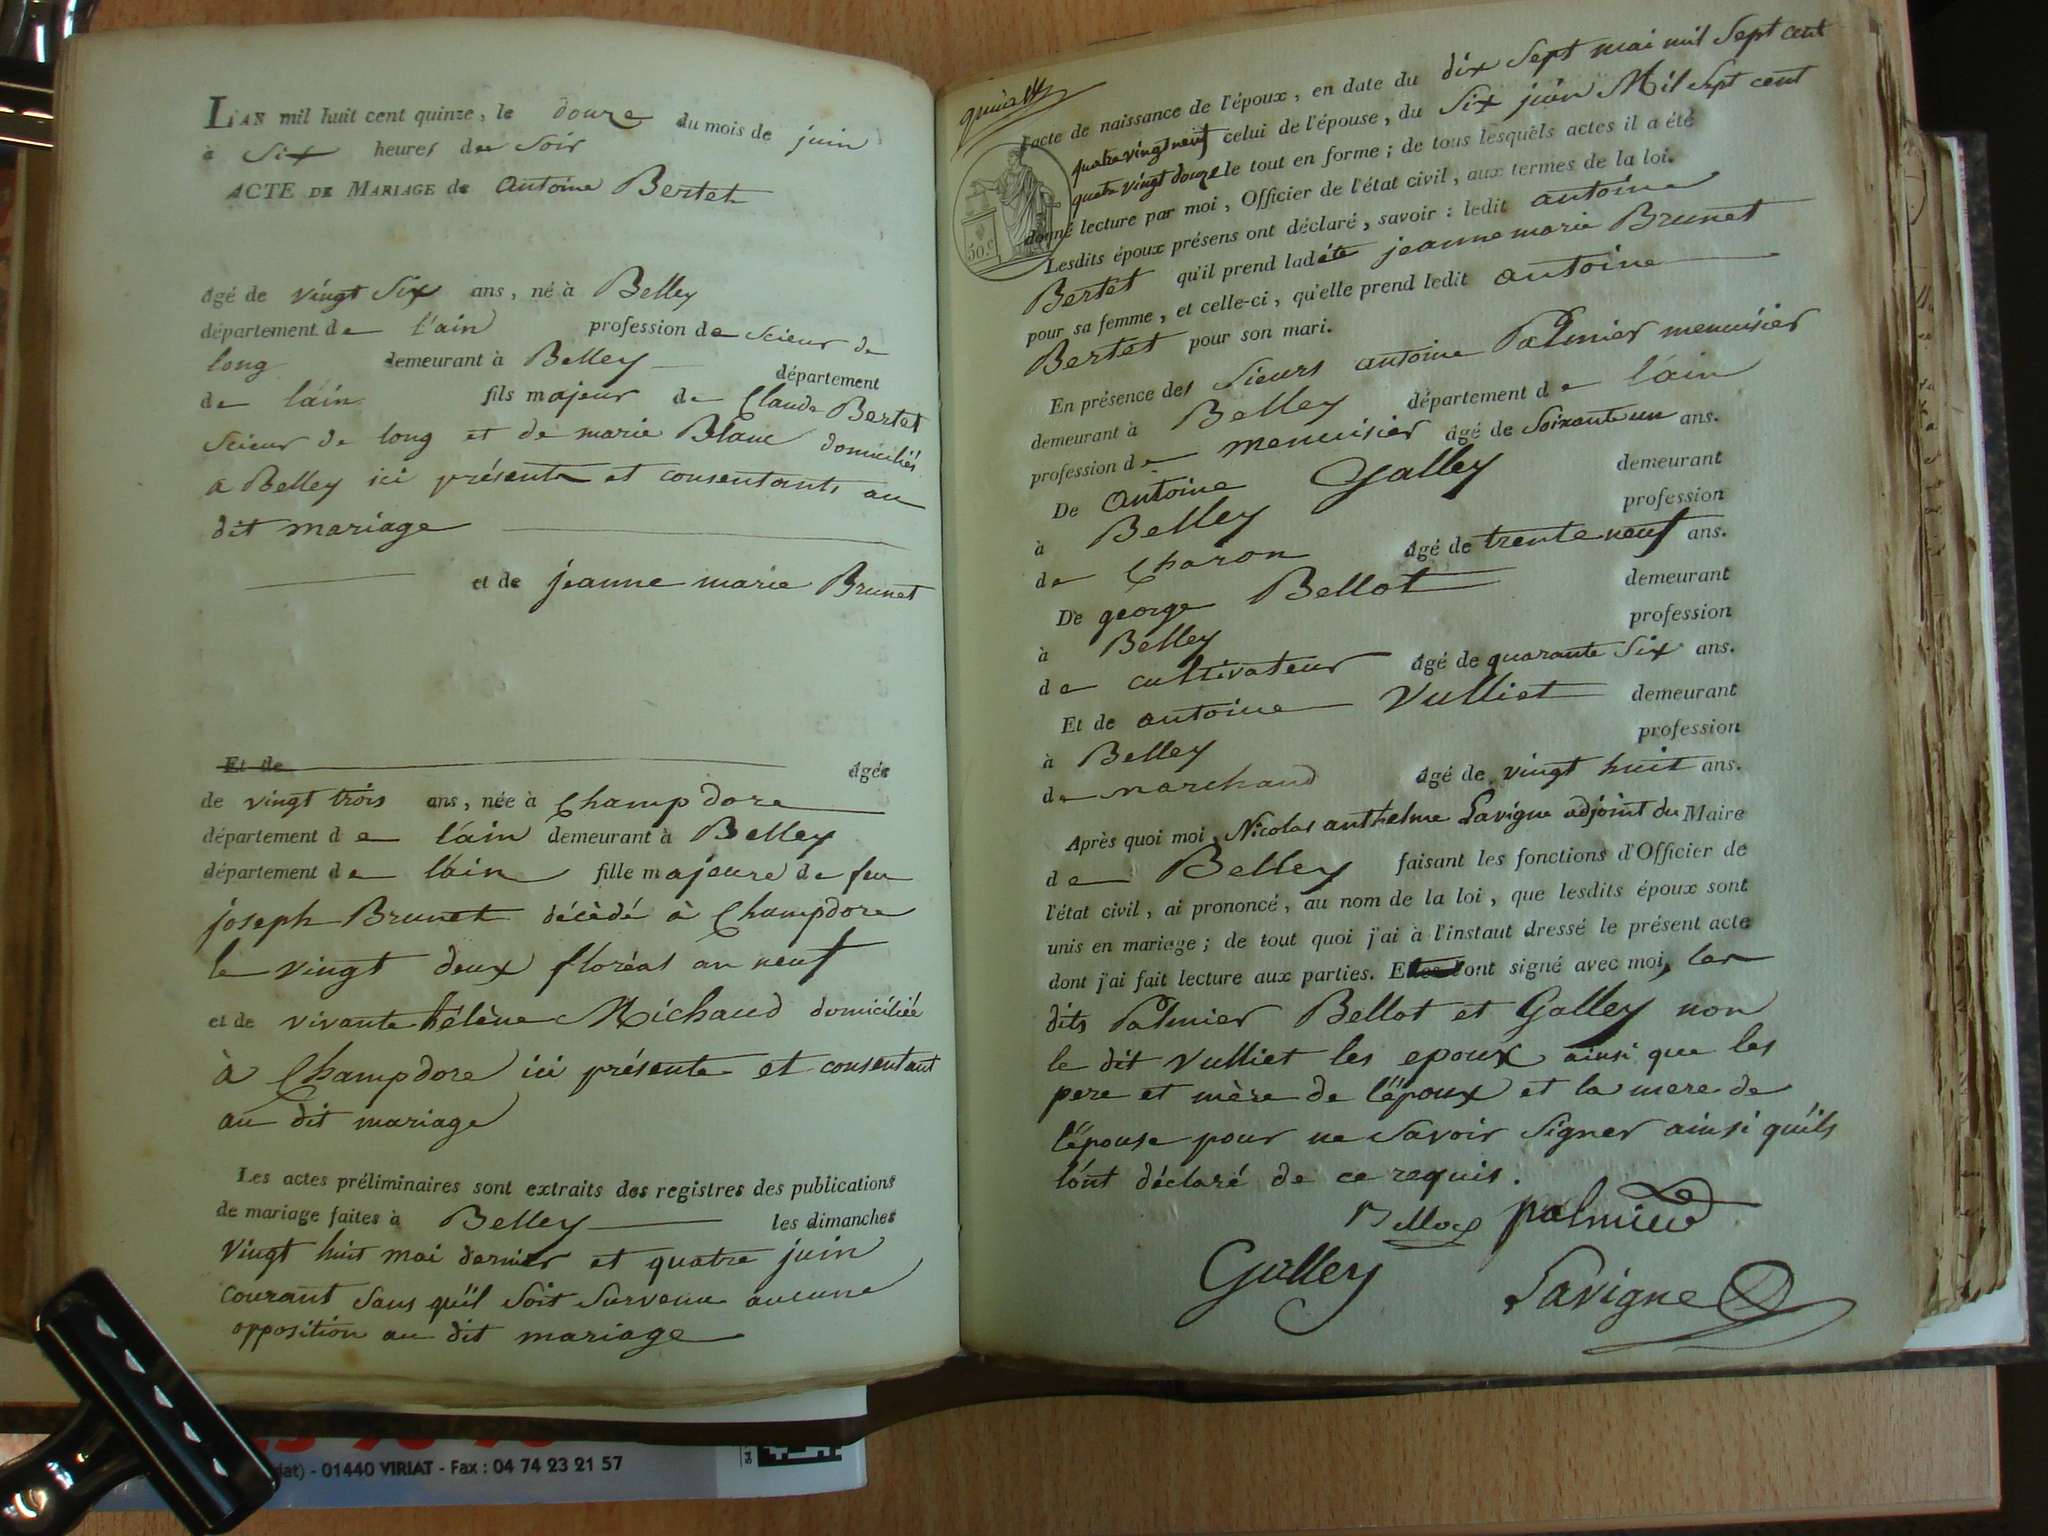 L'AN mil huit cent quinze, le douze du mois de juin
à Six heures du Soir
ACTE DE MARIAGE de antoine Bertet
âgé de vingt Six ans, né à Belley
département de l'ain profession de Scieur de
long demeurant à Belley département
de l'ain fils majeur de Claude Bertet
Scieur de long et de marie Blanc domiciliés
a Belley ici présents et consentants au
dit mariage
et de jeanne marie Brunet
Et de âgée
de vingt trois ans, née à Champdore
département de l'ain demeurant à Belley
département de l'ain fille majeure de feu
joseph Brunet décédé à Champdore
le vingt deux floréal an neuf
et de vivante hélène Michaud domiciliée
à Champdore ici présente et consentant
au dit mariage
Les actes préliminaires sont extraits des registres des publications
de mariage faites à Belley les dimanches
vingt huit mai dernier et quatre juin
courant Sans qu'il Soit Survenu aucune
opposition au dit mariage
l'acte de naissance de l'époux, en date du dix Sept mai mil Sept cent
quatre vingt neuf celui de l'épouse, du Six juin Mil Sept cent
quatre vingt douze le tout en forme; de tous lesquels actes il a été
donné lecture par moi, Officier de l'état civil, aux termes de la loi.
50 c
Lesdits époux présens ont déclaré, savoir: ledit antoine
Bertet qu'il prend ladite jeanne marie Brunet
pour sa femme, et celle-ci, qu'elle prend ledit antoine
Bertet pour son mari.
En présence des Sieurs antoine Palmier menuisier
demeurant à Belley département de l'ain
profession de menuisier âgé de Soixante un ans.
De antoine Galley demeurant
à Belley profession
de Charon âgé de trente neuf ans.
De george Bellot demeurant
à Belley profession
de cultivateur âgé de quarante Six ans.
Et de antoine Vulliet demeurant
à Belley profession
de marchand âgé de vingt huit ans.
Après quoi moi, Nicolas anthelme Lavigne adjoint du Maire
de Belley faisant les fonctions d'Officier de
l'état civil, ai prononcé, au nom de la loi, que lesdits époux sont
unis en mariage; de tout quoi j'ai à l'instant dressé le présent acte
dont j'ai fait lecture aux parties. Et ont signé avec moi, les
dits Palmier Bellot et Galley non
le dit Vulliet les epoux ainsi que les
pere et mère de l'époux et la mere de
l'épouse pour ne Savoir Signer ainsi qu'ils
l'ont déclaré de ce requis.
Bellot palmier
Galley Lavigne
iat) - 01440 VIRIAT - Fax : 04 74 23 21 57